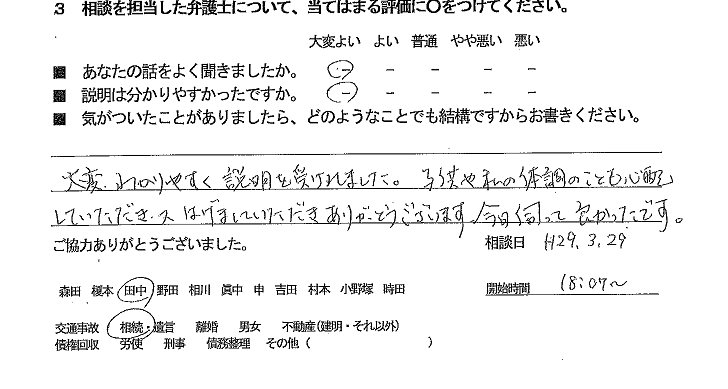 3 相談を担当した弁護士について、当てはまる評価に〇をつけてください。
大変よい よい 普通 やや悪い 悪い
■ あなたの話をよく聞きましたか。 － － － － －
■ 説明は分かりやすかったですか。 － － － － －
■ 気がついたことがありましたら、どのようなことでも結構ですからお書きください。
大変わかりやすく説明を受けれました。子供や私の体調のことも心配
していただき、又はげましていただきありがとうございます。今日伺って良かったです。
ご協力ありがとうございました。 相談日 H29.3.29
森田 榎本 田中 野田 相川 眞中 申 吉田 村本 小野塚 時田 開始時間 18:07～
交通事故 相続・遺言 離婚 男女 不動産(建明・それ以外)
債権回収 労使 刑事 債務整理 その他 ( )